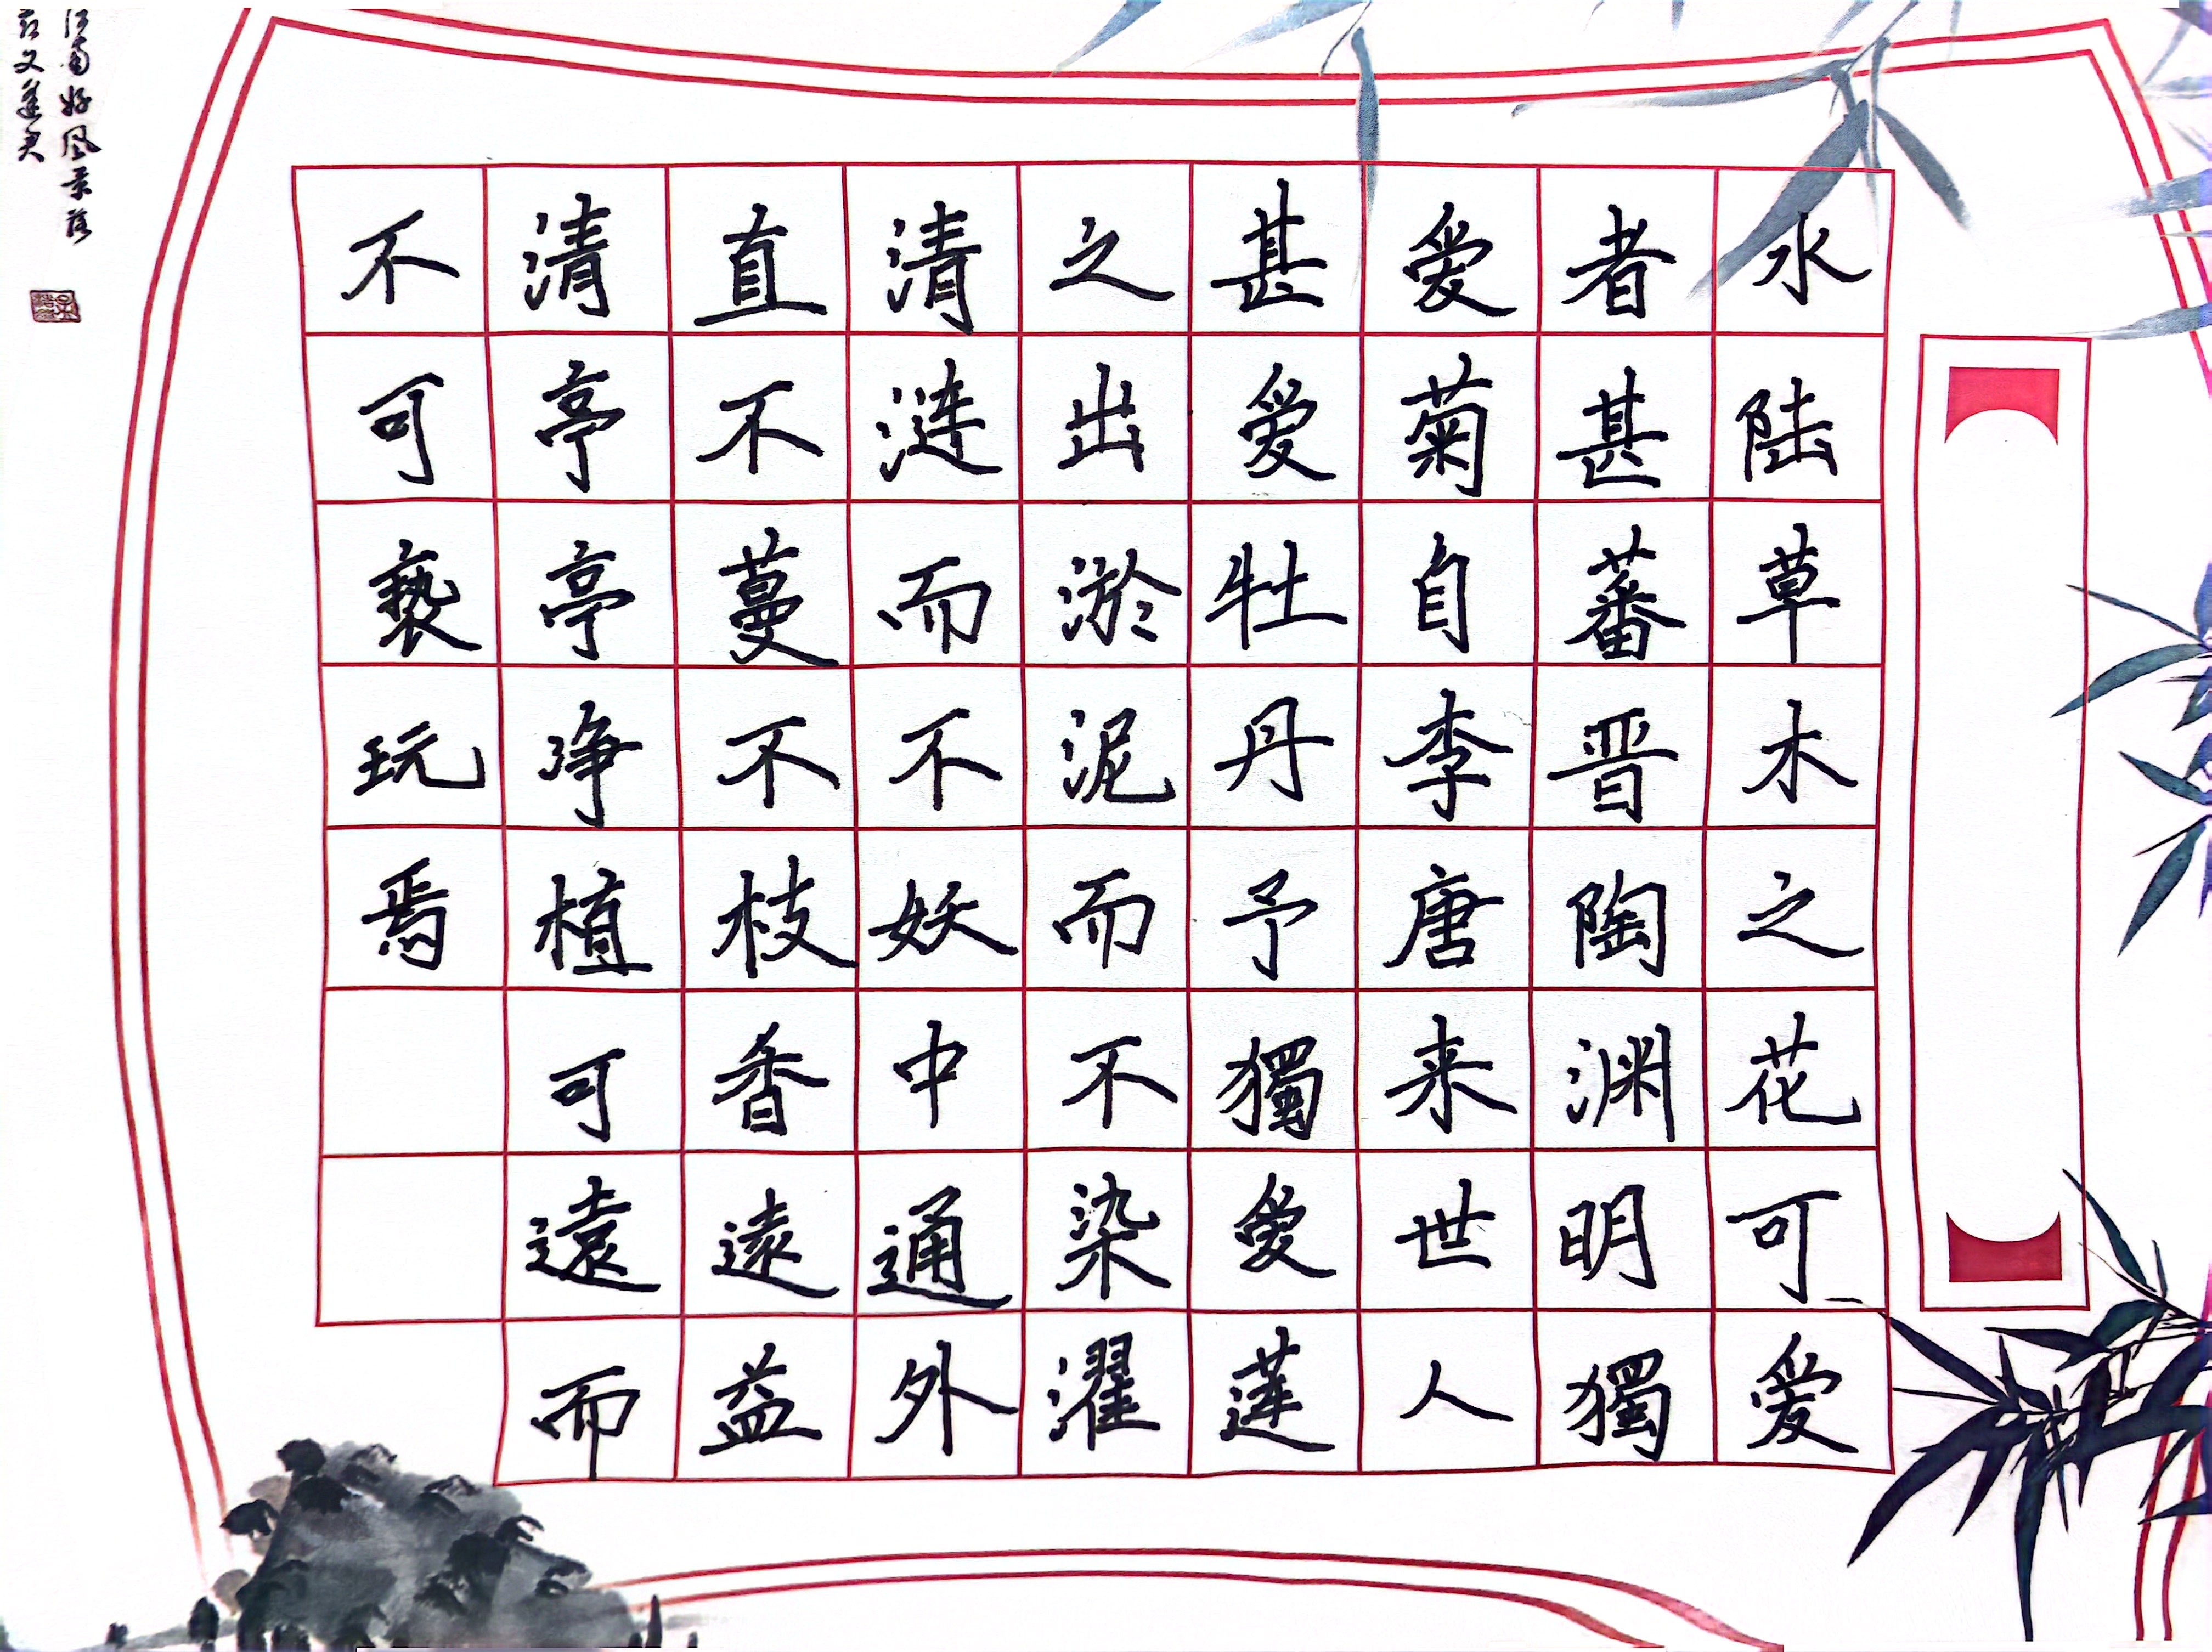 水陆草木之花可爱
者甚蕃晋陶渊明獨
爱菊自李唐来世人
甚爱牡丹予獨爱蓮
之出淤泥而不染濯
清漣而不妖中通外
直不蔓不枝香遠益
清亭亭净植可遠而
不可亵玩焉
江南好风景落
又逢君